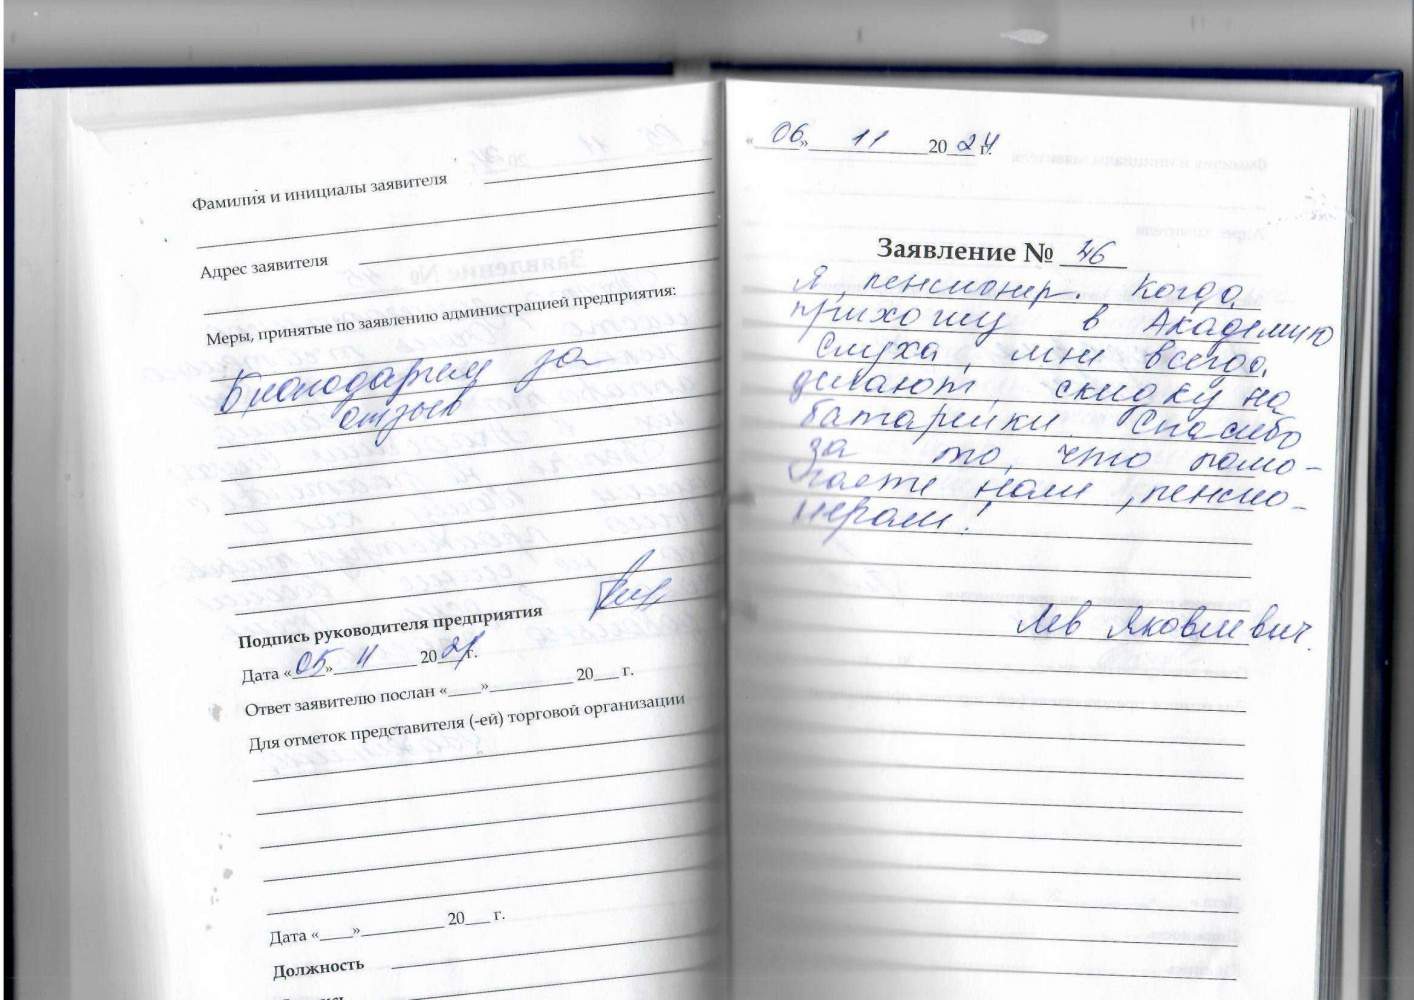 Фамилия и инициалы заявителя
Адрес заявителя
Меры, принятые по заявлению администрацией предприятия:
Благодарим за
отзыв
Подпись руководителя предприятия
Дата «05» 11 2024 г.
Ответ заявителю послан «____»__________ 20___ г.
Для отметок представителя (-ей) торговой организации
Дата «____»__________ 20___ г.
Должность
«06» 11 2024 г.
Заявление № 46
Я, пенсионер. Когда
прихожу в Академию
Слуха, мне всегда
делают скидку на
батарейки Спасибо
за то, что помо-
гаете нам, пенсио-
нерам!
Лев Яковлевич.